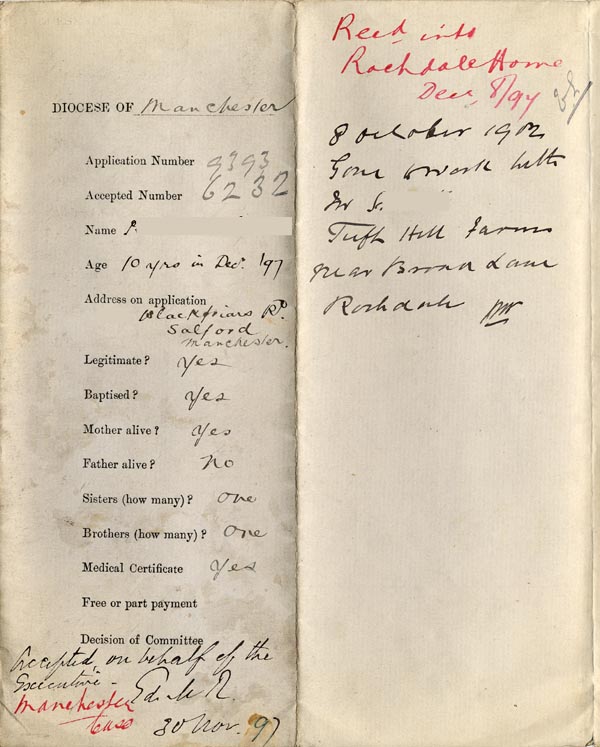 DIOCESE OF Manchester
Application Number 9393
Accepted Number 6232
Name
Age 10 yrs in Decr. '97
Address on application
Blackfriars Rd.
Salford
Manchester.
Legitimate? Yes
Baptised? Yes
Mother alive? Yes
Father alive? No
Sisters (how many)? One
Brothers (how many)? One
Medical Certificate Yes
Free or part payment
Decision of Committee
Accepted on behalf of the
Executive -
Manchester
Case
30 Nov. 97
Recd into
Rochdale Home
Dec 8/97
8 October 1902
Gone to work with
Mr
Tuft Hill Farm
near Broad Lane
Rochdale